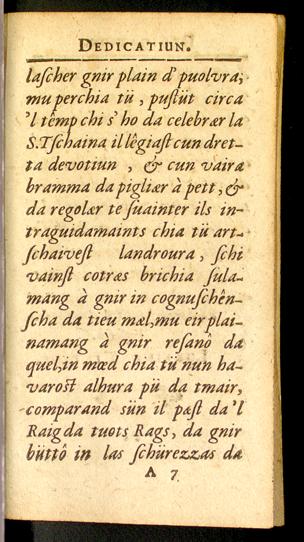 DEDICATIUN.
laſcher gnir plain d' puolvra,
mu perchia tü, puſtüt circa
'l têmp chi s' ho da celebrær la
S.Tſchaina il lêgiaſt cun dret-
ta devotiun, & cun vaira
bramma da pigliær à pett, &
da regolær te ſuainter ils in-
traguidamaints chia tü art-
ſchaiveſt landroura, ſchi
vainſt cotræs brichia ſula-
mang à gnir in cognuſchên-
ſcha da tieu mæl, mu eir plai-
namang à gnir reſanô da
quel, in mœd chia tü nun ha-
varoſt alhura pü da tmair,
comparand sün il pæſt da 'l
Raig da tuots Rags, da gnir
büttô in las ſchürezzas da
A 7